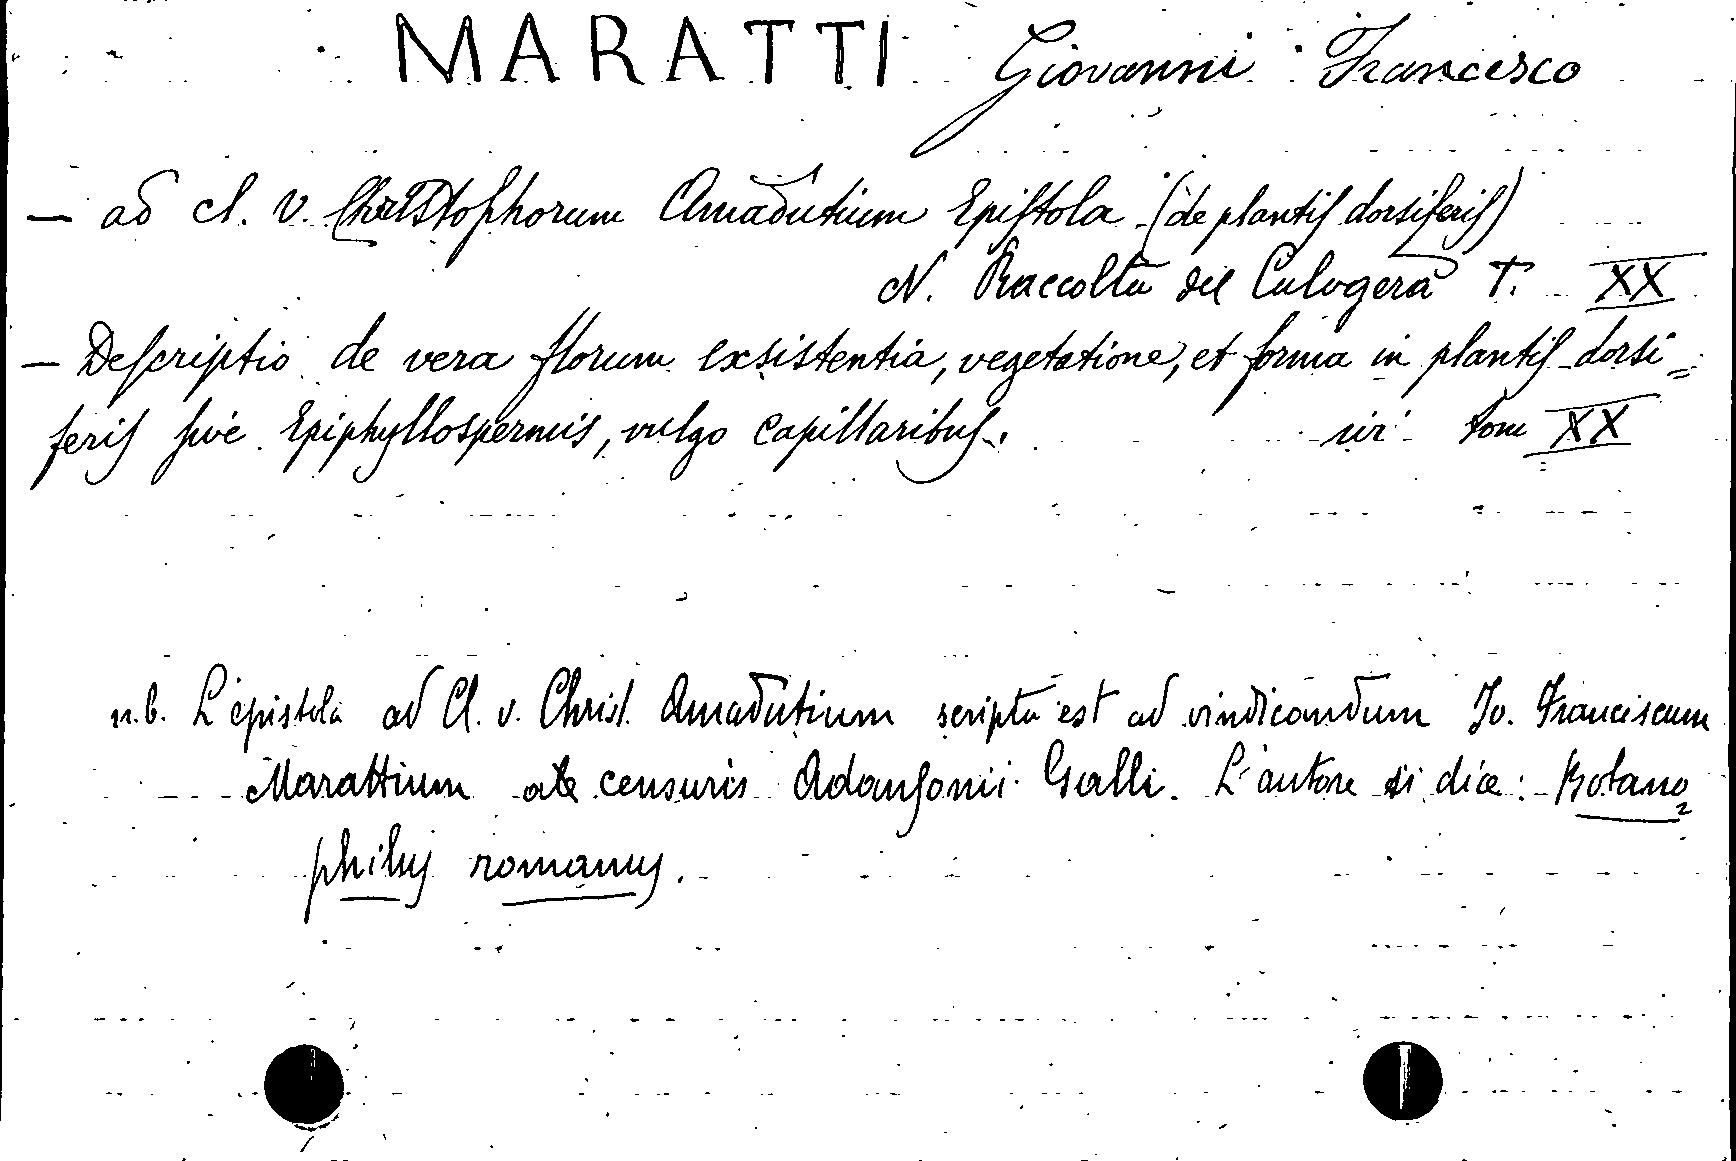 MARATTI Giovanni Francesco
— ad cl. v. Christophorum Amadutium Epistola (de plantis dorsiferis)
N. Raccolta del Calogerà T. XX
— Descriptio de vera florum exsistentia, vegetatione, et forma in plantis dorsi=
feris sive Epiphyllospermis, vulgo capillaribus. ivi tom XX
n.b. L'epistola ad Cl. v. Christ. Amadutium scripta est ad vindicandum Jo. Franciscum
Marattium a censuris Adansonii Galli. L'autore si dice: Botano=
philus romanus.